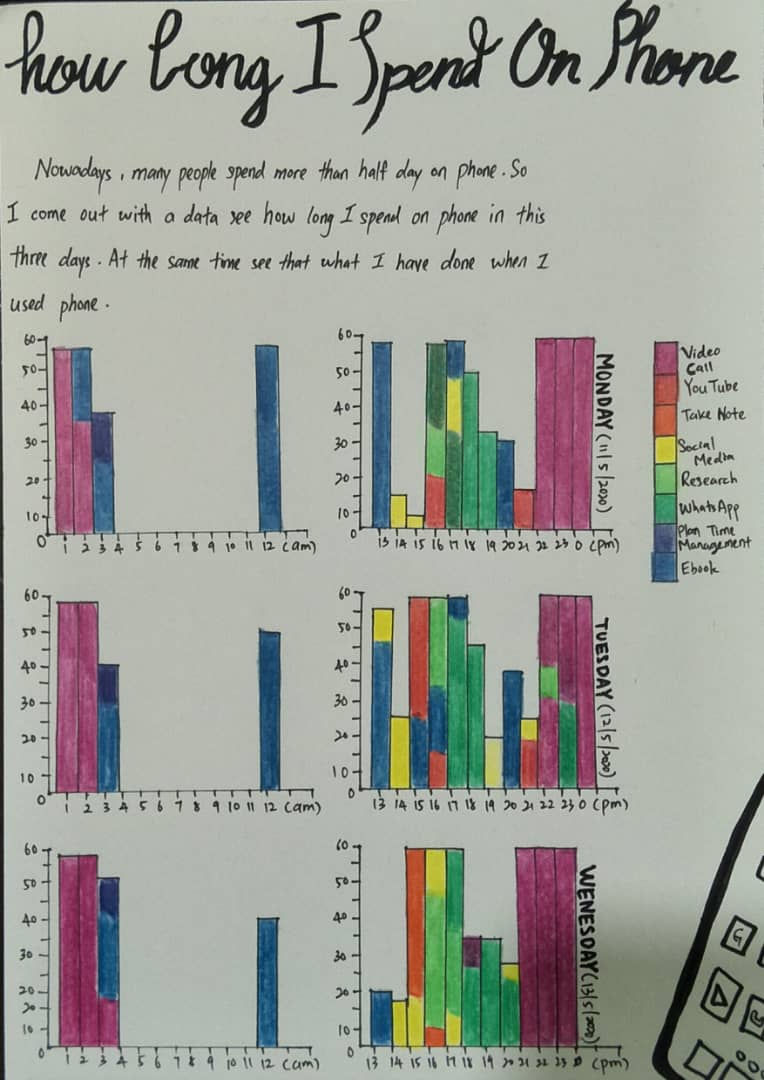 how long I Spend On Phone
Nowadays, many people spend more than half day on phone. So
I come out with a data see how long I spend on phone in this
three days. At the same time see that what I have done when I
used phone.
60
50
40
30
20
10
0
1 2 3 4 5 6 7 8 9 10 11 12 (am)
60
50
40
30
20
10
0
13 14 15 16 17 18 19 20 21 22 23 0 (pm)
MONDAY (11/5/2020)
Video
Call
YouTube
Take Note
Social
Media
Research
WhatsApp
Plan Time
Management
Ebook
60
50
40
30
20
10
0
1 2 3 4 5 6 7 8 9 10 11 12 (am)
60
50
40
30
20
10
0
13 14 15 16 17 18 19 20 21 22 23 0 (pm)
TUESDAY (12/5/2020)
60
50
40
30
20
20
10
0
1 2 3 4 5 6 7 8 9 10 11 12 (am)
60
50
40
30
20
10
0
13 14 15 16 17 18 19 20 21 22 23 0 (pm)
WENESDAY (13/5/2020)
G